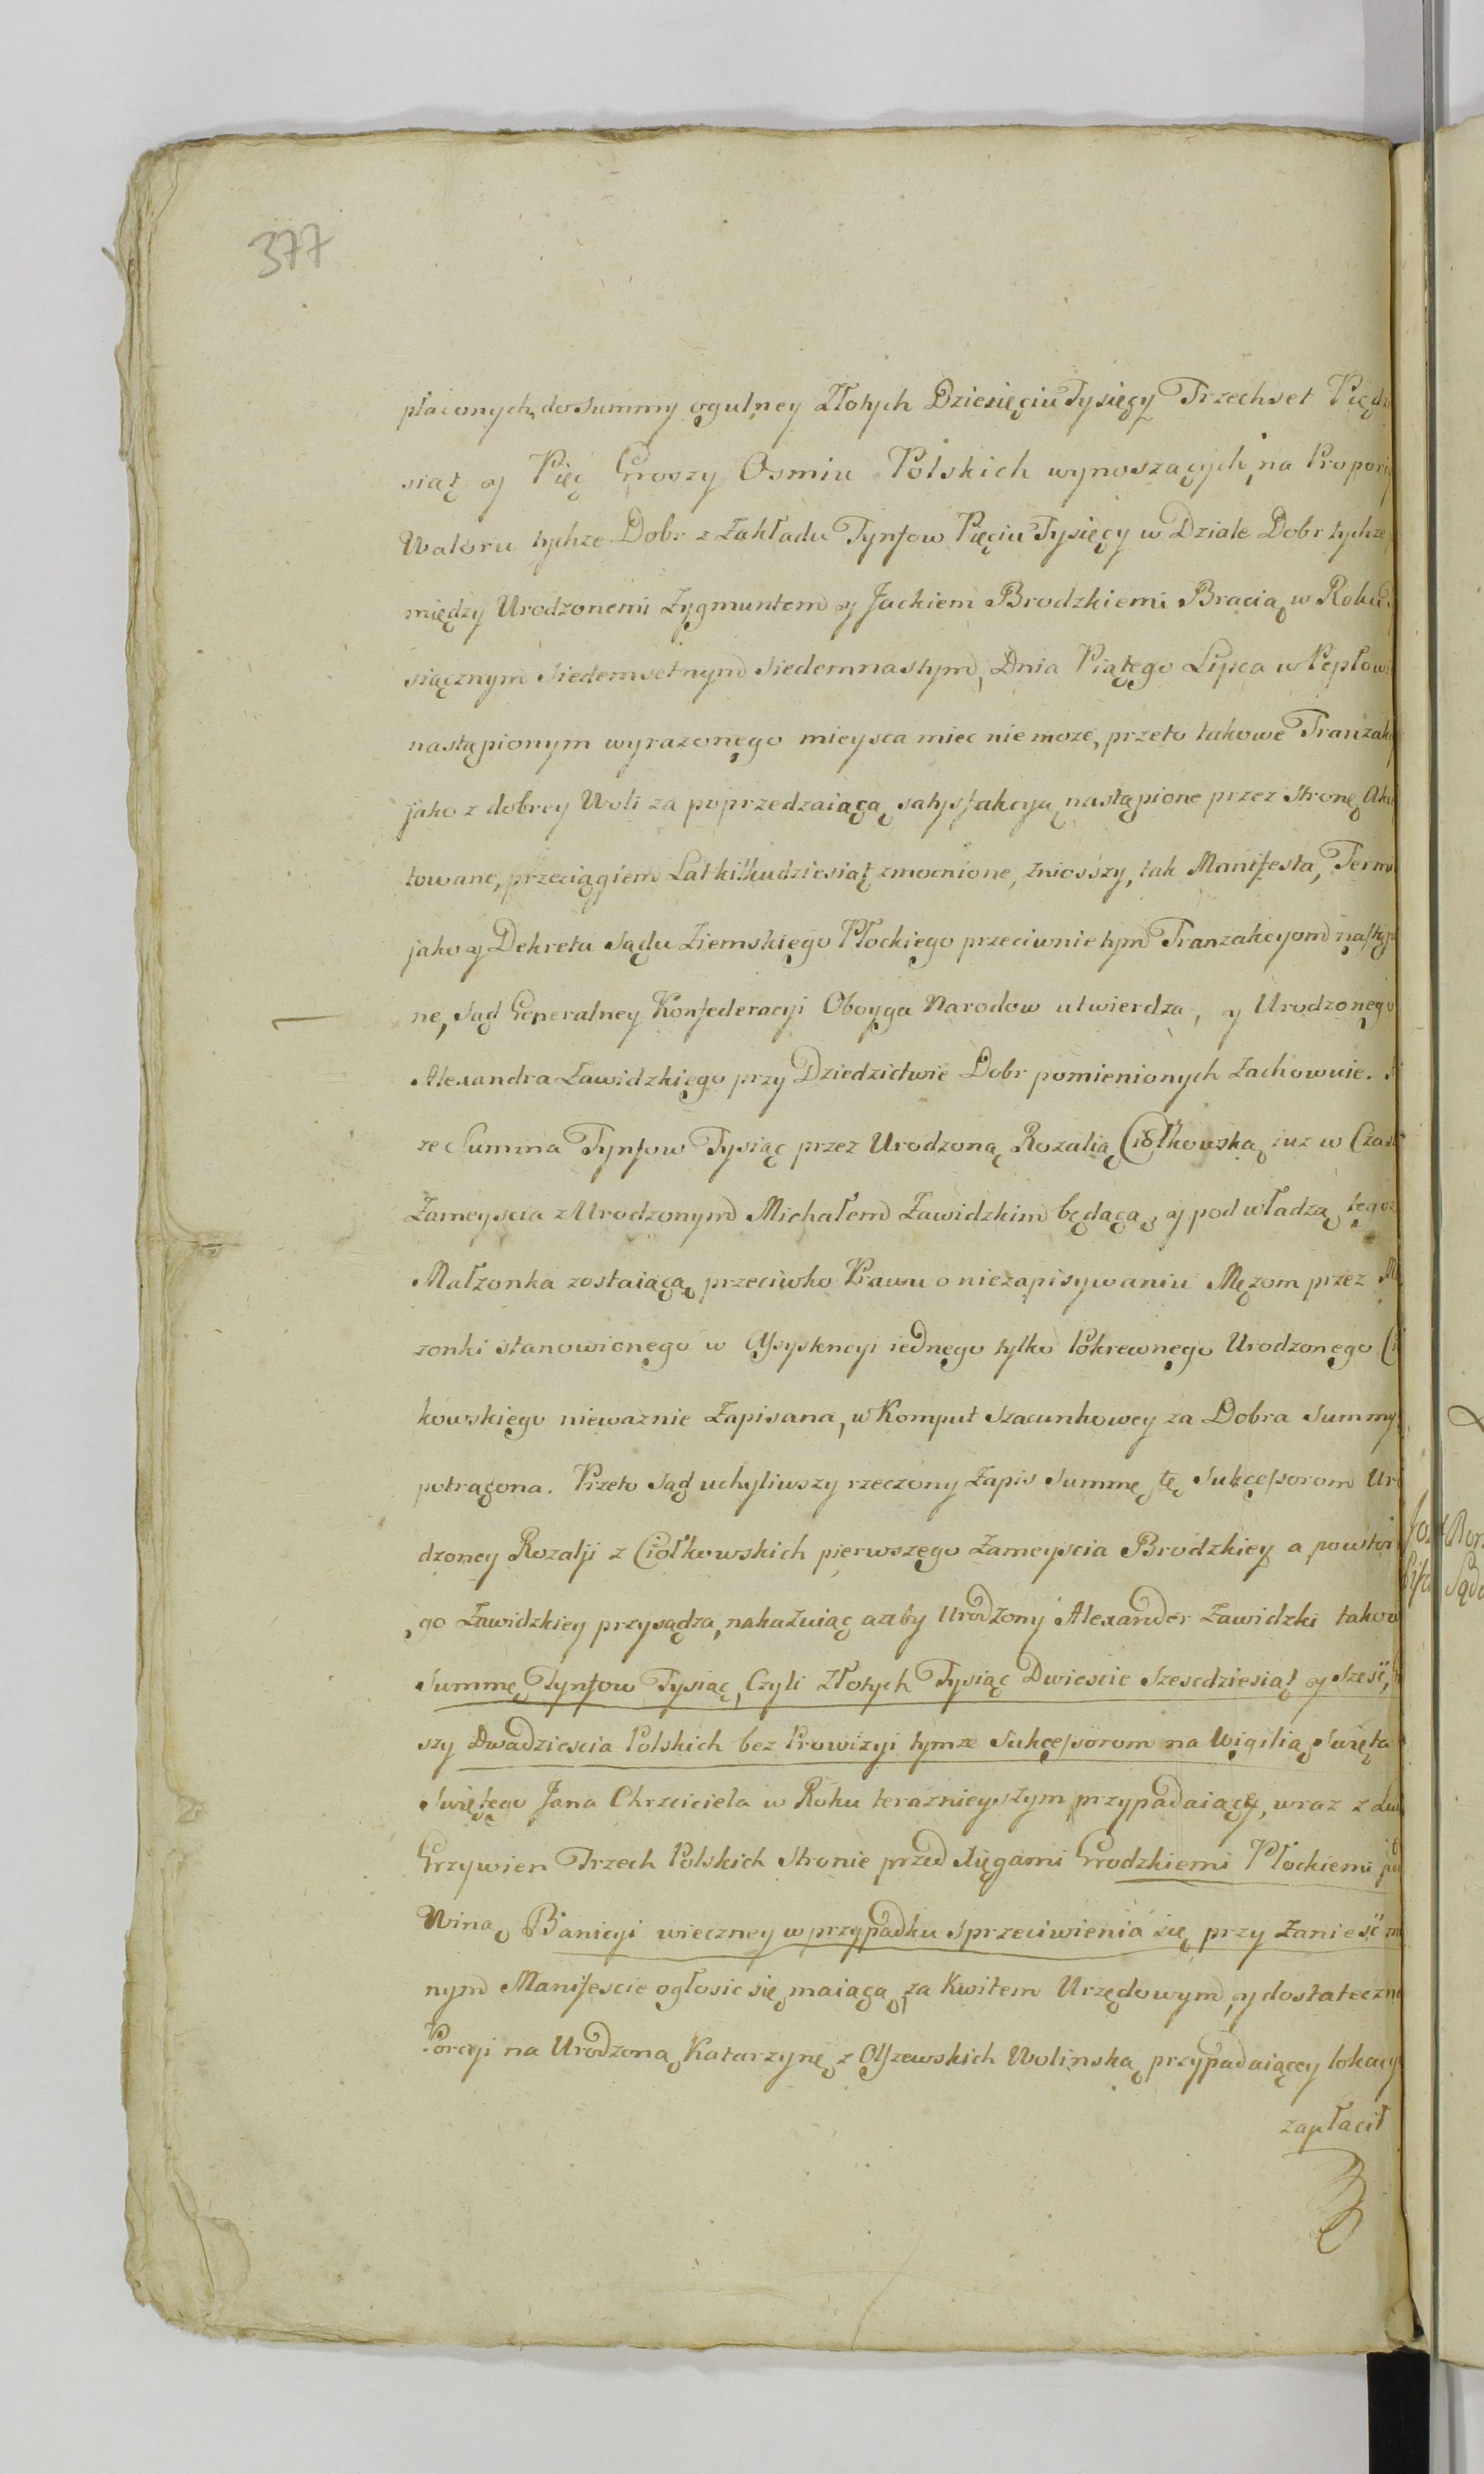 377
płaconych, do Summy ogulney Złotych Dziesięciu Tysięcy Trzechset Piędz
siąt y Pięć Groszy Osmiu Polskich wynoszących, na Propor
Waloru tychze Dobr z Zakładu Tynfow Pięciu Tysięcy w Dziale Dobr tychze
między Urodzonemi Zygmuntem y Jackiem Brodzkiemi Bracią w Roku
siącznym Siedemsetnym Siedemnastym, Dnia Piątego Lipca w Pepłow
nastąpionym wyrazonego mieysca miec nie moze, przeto takowe Tranzak
jako z dobrey Woli za poprzedzaiącą satysfakcyą nastąpione przez Stronę
towane, przeciągiem Lat kilkudziesiąt zmocnione, zniosszy, tak Manifesta, Term
jako y Dekreta Sądu Ziemskiego Płockiego przeciwnie tym Tranzakcyom nastąp
ne, Sąd Generalney Konfederacyi Oboyga Narodow utwierdza, y Urodzonego
Alexandra Zawidzkiego przy Dziedzictwie Dobr pomienionych Zachowuie.
ze Summa Tynfow Tysiąc przez Urodzoną Rozalią Ciołkowską iuz w Czas
Zameyscia z Urodzonym Michałem Zawidzkim będącą, y pod władzą tegoz
Małzonka zostaiącą, przeciwko Prawu o niezapisywaniu Męzom przez
zonki stanowionego w Assystencyi iednego tylko Pokrewnego Urodzonego
kowskiego niewaznie Zapisana, w Komput szacunkowey za Dobra Summy
potrącona. Przeto Sąd uchyliwszy rzeczony Zapis Summę tę Sukcessorom Uro
dzoney Rozalji z Ciołkowskich pierwszego Zameyscia Brodzkiey a powtor
go Zawidzkiey przysądza, nakazuiąc azaby Urodzony Alexander Zawidzki takow
Summę Tynfow Tysiąc, Czyli Złotych Tysiąc Dwiescie Szescdziesiąt y Szesć,
szy Dwadziescia Polskich bez Prowizyi tymze Sukcessorom na Wigilią Swięta
Swiętego Jana Chrzciciela w Roku teraznieyszym przypadaiącą, wraz z
Grzywien Trzech Polskich Stronie przed Xięgami Grodzkiemi Płockiemi
Winą Banicyi wieczney w przypadku sprzeciwienia się, przy Zaniesć
nym Manifescie ogłosic się maiącą, za Kwitem Urzędowym, y dostateczn
Porcyi na Urodzoną Katarzynę z Olszewskich Wolinską przypadaiącey lokacy
zapłacił